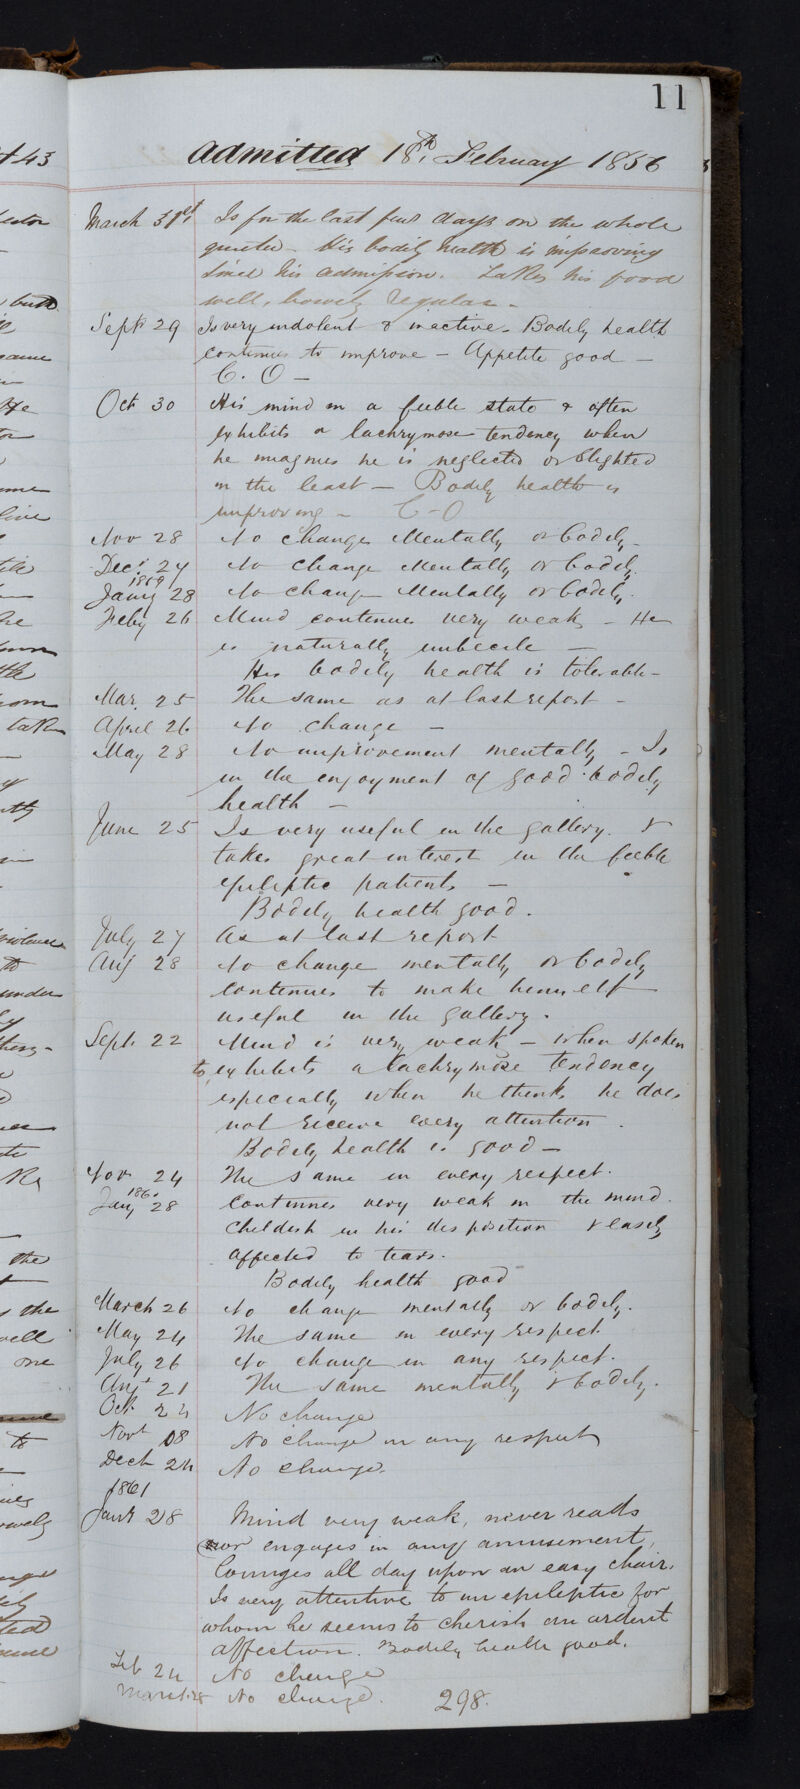 11
Admitted 18th. February 1856
March 31st. Is for the last few days on the whole
quieter. His bodily health is improving
since his admission. Takes his food
well, bowels regular.
Sept 29 Is very indolent & inactive. Bodily health
continues to improve – Appetite good –
C. O –
Oct 30 His mind in a feeble state & often
exhibits a lachrymose tendency when
he imagines he is neglected or slighted
in the least – Bodily health is
improving – C-O
Nov 28 No change Mentally or bodily –
Decr. 24 No change Mentally or bodily.
1859
Jany 28 No change Mentally or bodily.
Feby 26 Mind continues very weak – He
is naturally imbecile –
His bodily health is tolerable –
Mar. 25 The same as at last report –
April 26 No change –
May 28 No improvement mentally – Is
in the enjoyment of good bodily
health –
June 25 Is very useful in the gallery. &
takes great interest in the feeble
epileptic patients –
Bodily health good.
July 27 As at last report
Aug 28 No change mentally or bodily
continues to make himself
useful in the gallery.
Sept. 22 Mind is very weak – when spoken
to, exhibits a lachrymose tendency
especially when he thinks he does
not receive every attention.
Bodily health is good –
Nov 24 The same in every respect.
1860
Jany 28 Continues very weak in the mind.
Childish in his disposition & easily
affected to tears.
Bodily health good
March 26 No change mentally or bodily.
May 24 The same in every respect.
July 26 No change in any respect.
Augt 21 The same mentally & bodily.
Oct. 24 No change
Novr 08 No change in any respect
Dect 24 No change.
1861
Jany 28 Mind very weak, never reads
nor engages in any amusement,
lounges all day upon an easy chair.
Is very attentive to an epileptic for
whom he seems to cherish an ardent
affection. Bodily health good.
Feb 24 No change
March 28 No change. 298.